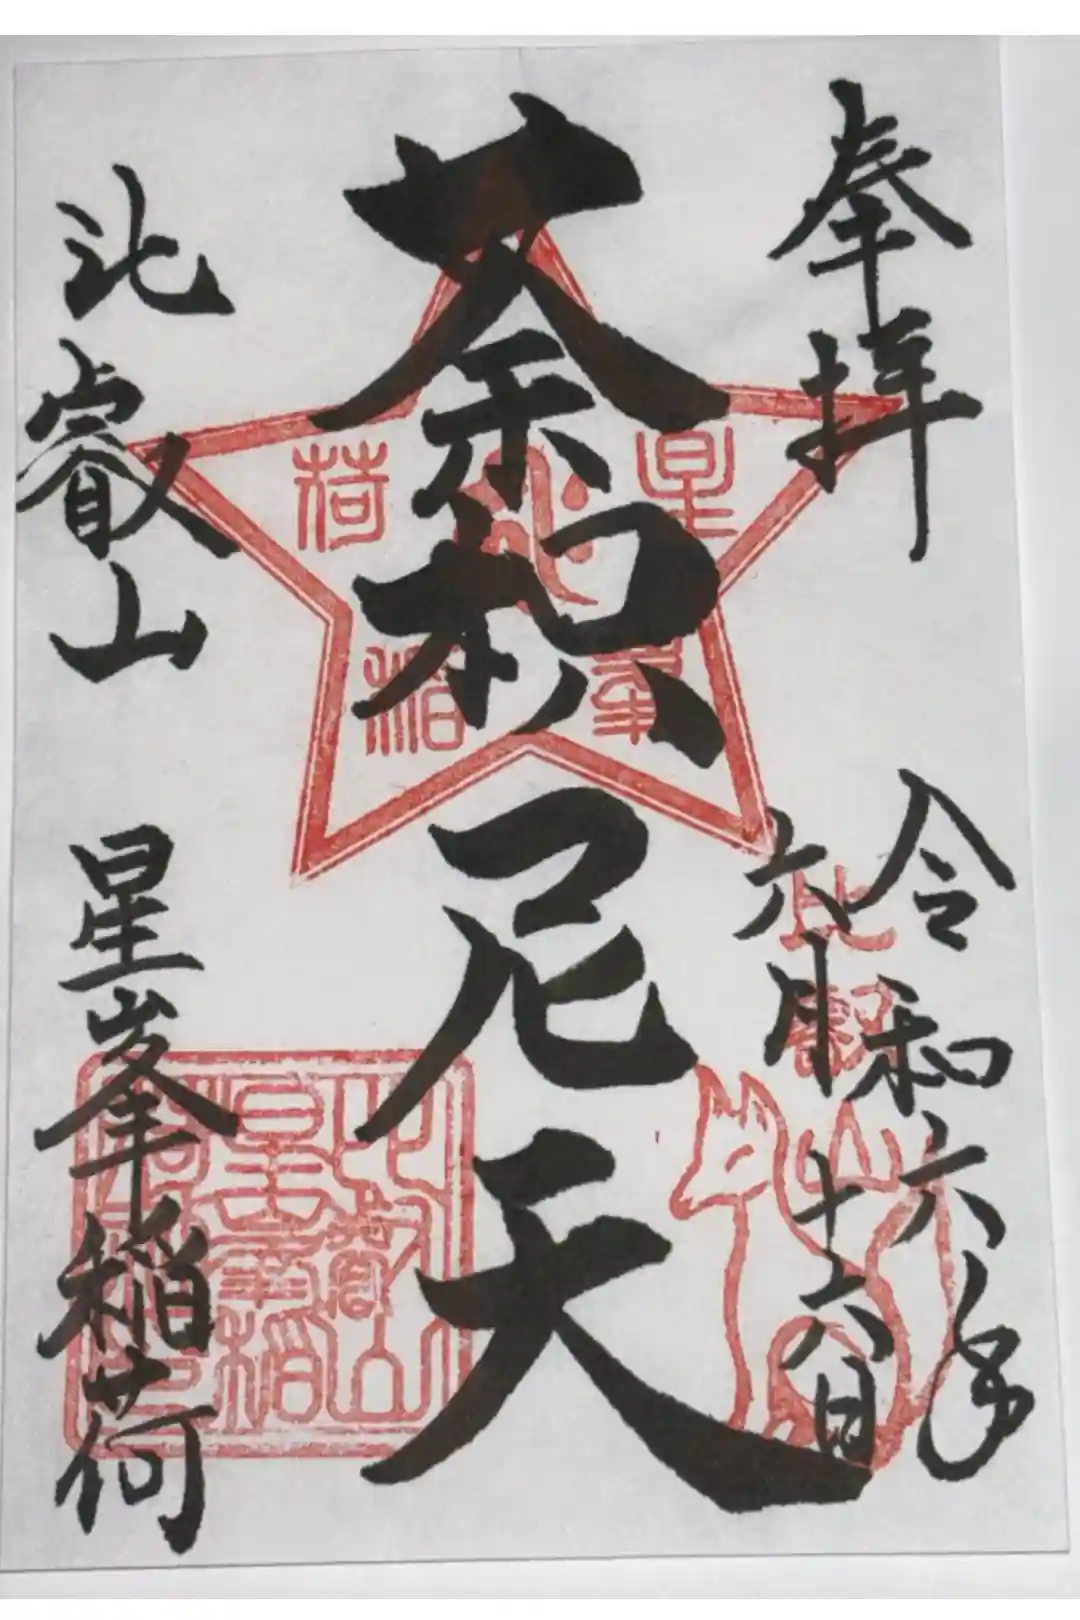 奉拝
令和六年
六月十六日
荼枳尼天
比叡山
星峯稲荷
星峯稲荷
比叡山
比叡山
星峯稲